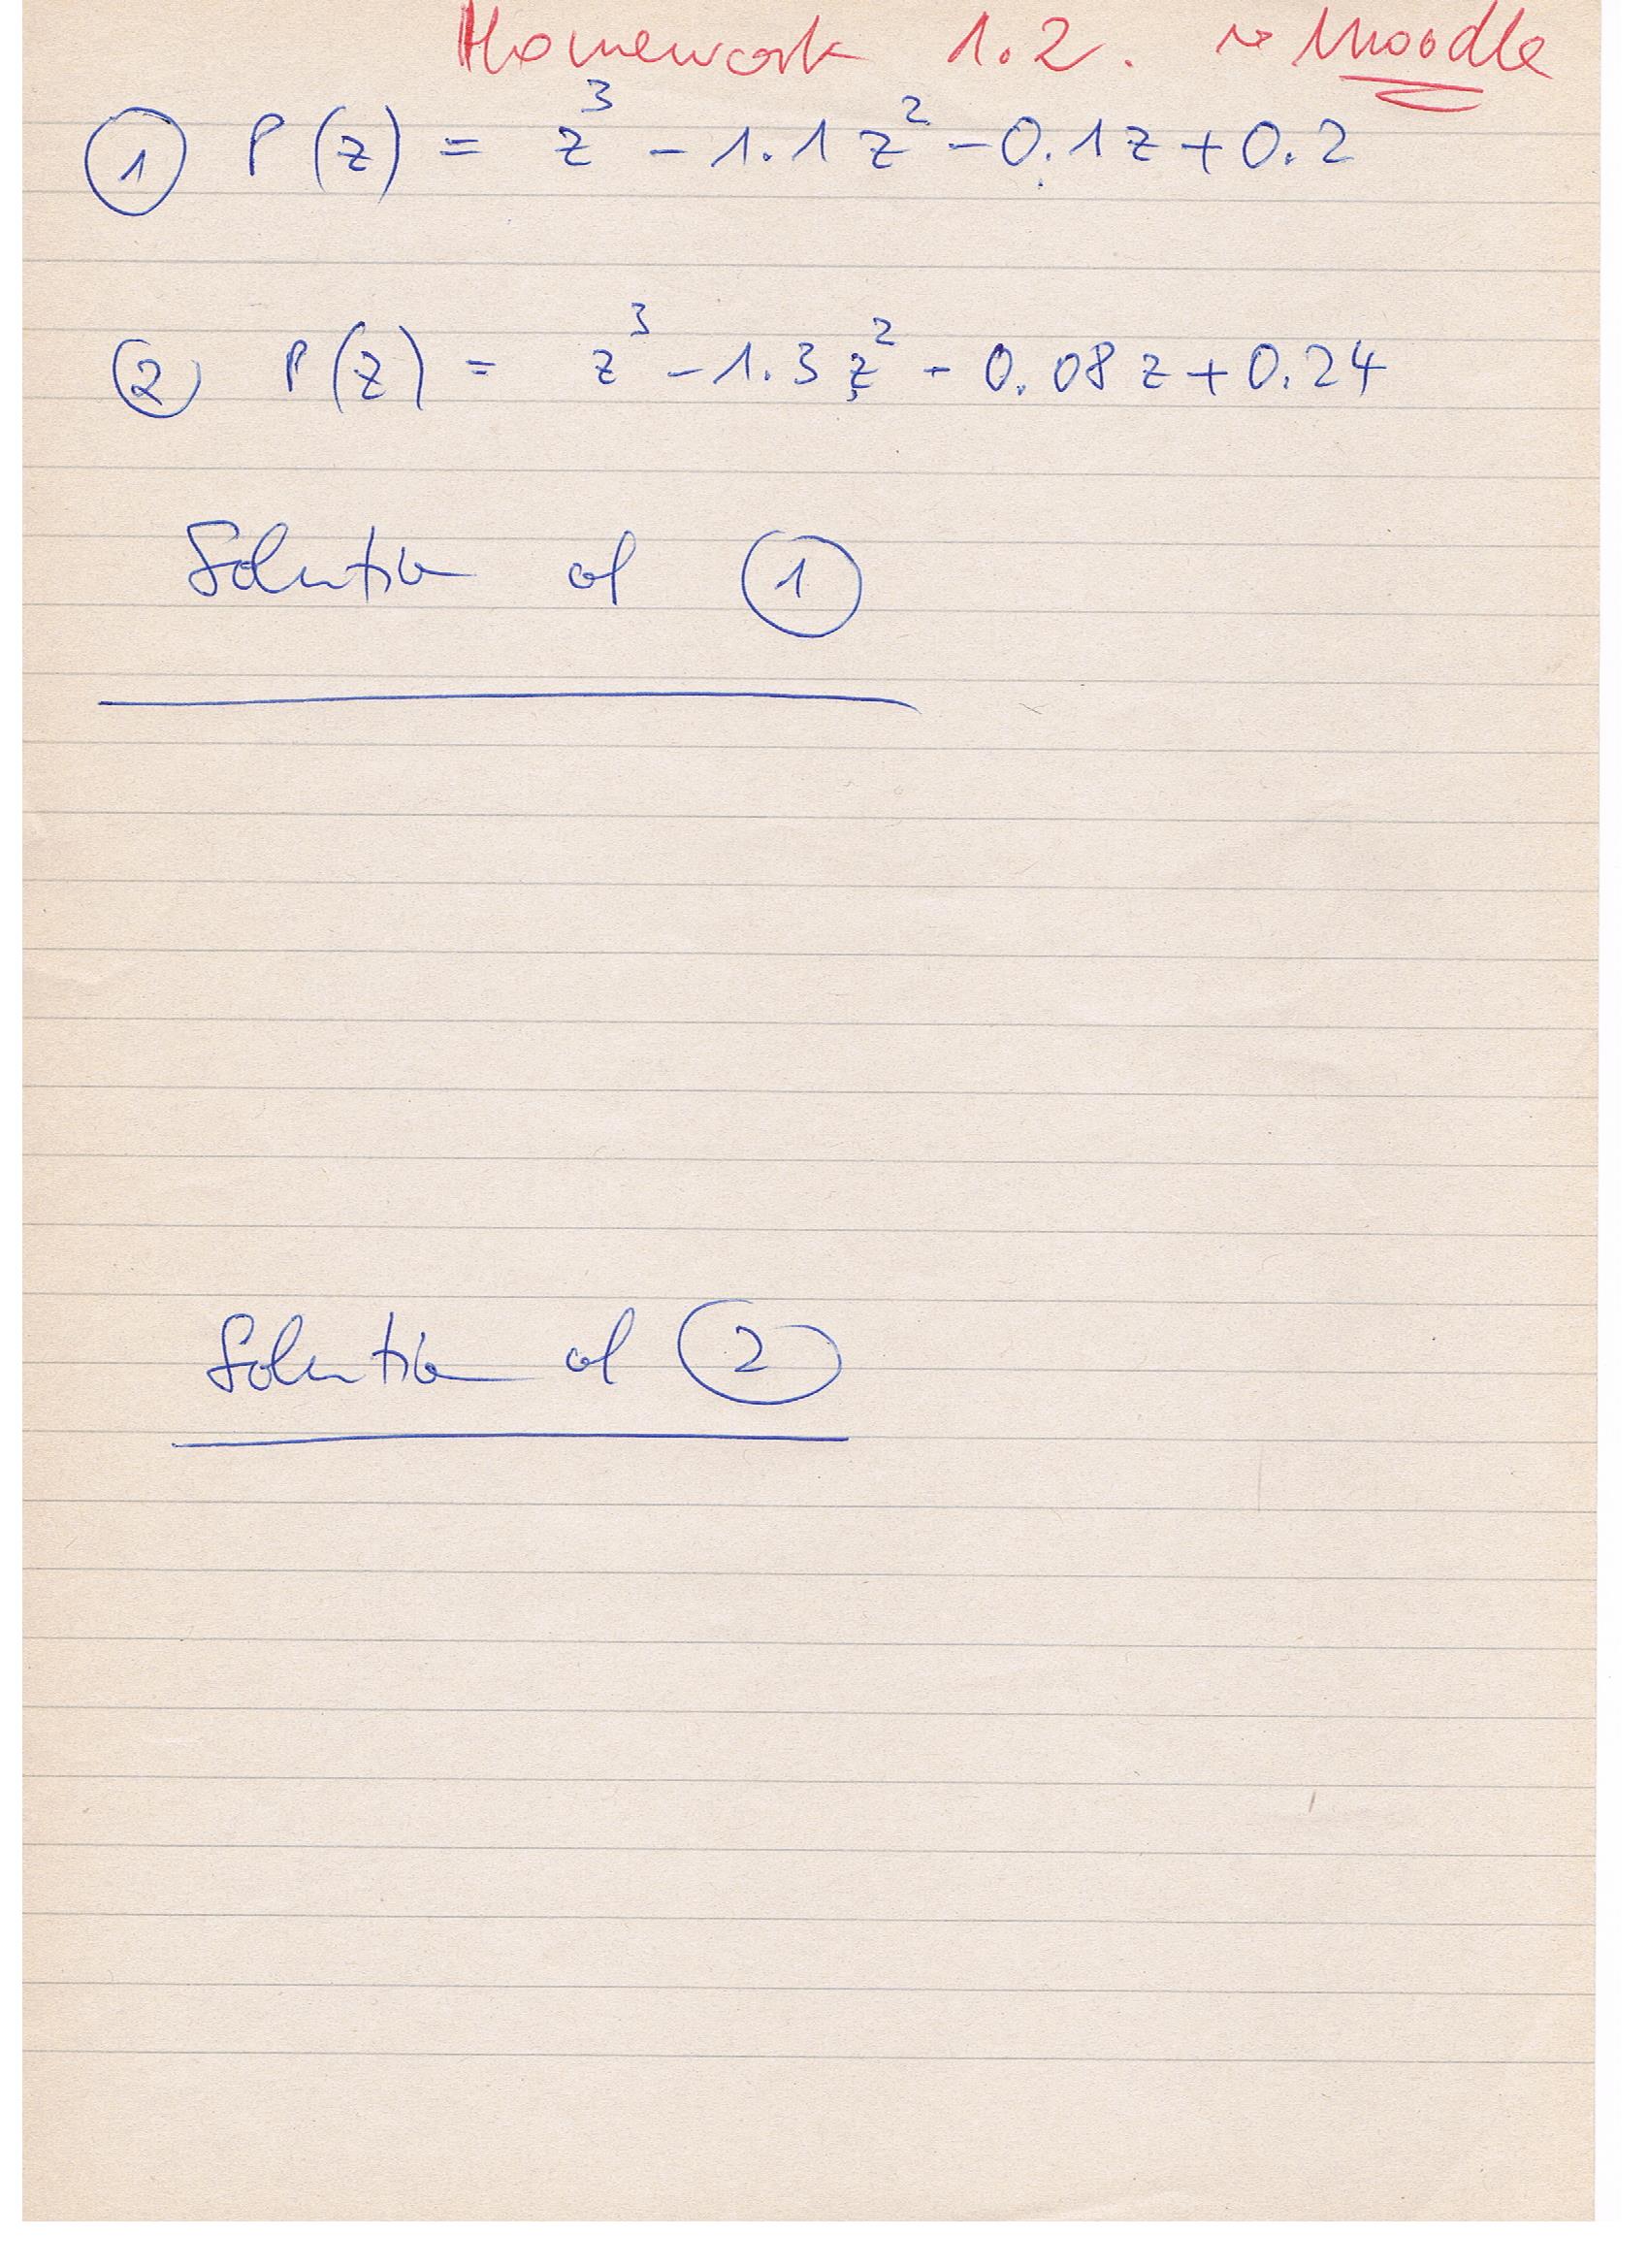 Homework 1.2. ~> Moodle
① P(z) = z³ - 1.1z² - 0.1z + 0.2
② P(z) = z³ - 1.3z² - 0.08z + 0.24
Solution of ①
Solution of ②